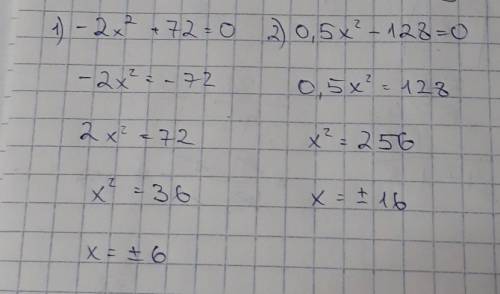 1) -2x² +72=0
-2x² = -72
2x² =72
x² = 36
x= ±6
2) 0,5x² -128=0
0,5x² =128
x² = 256
x = ±16